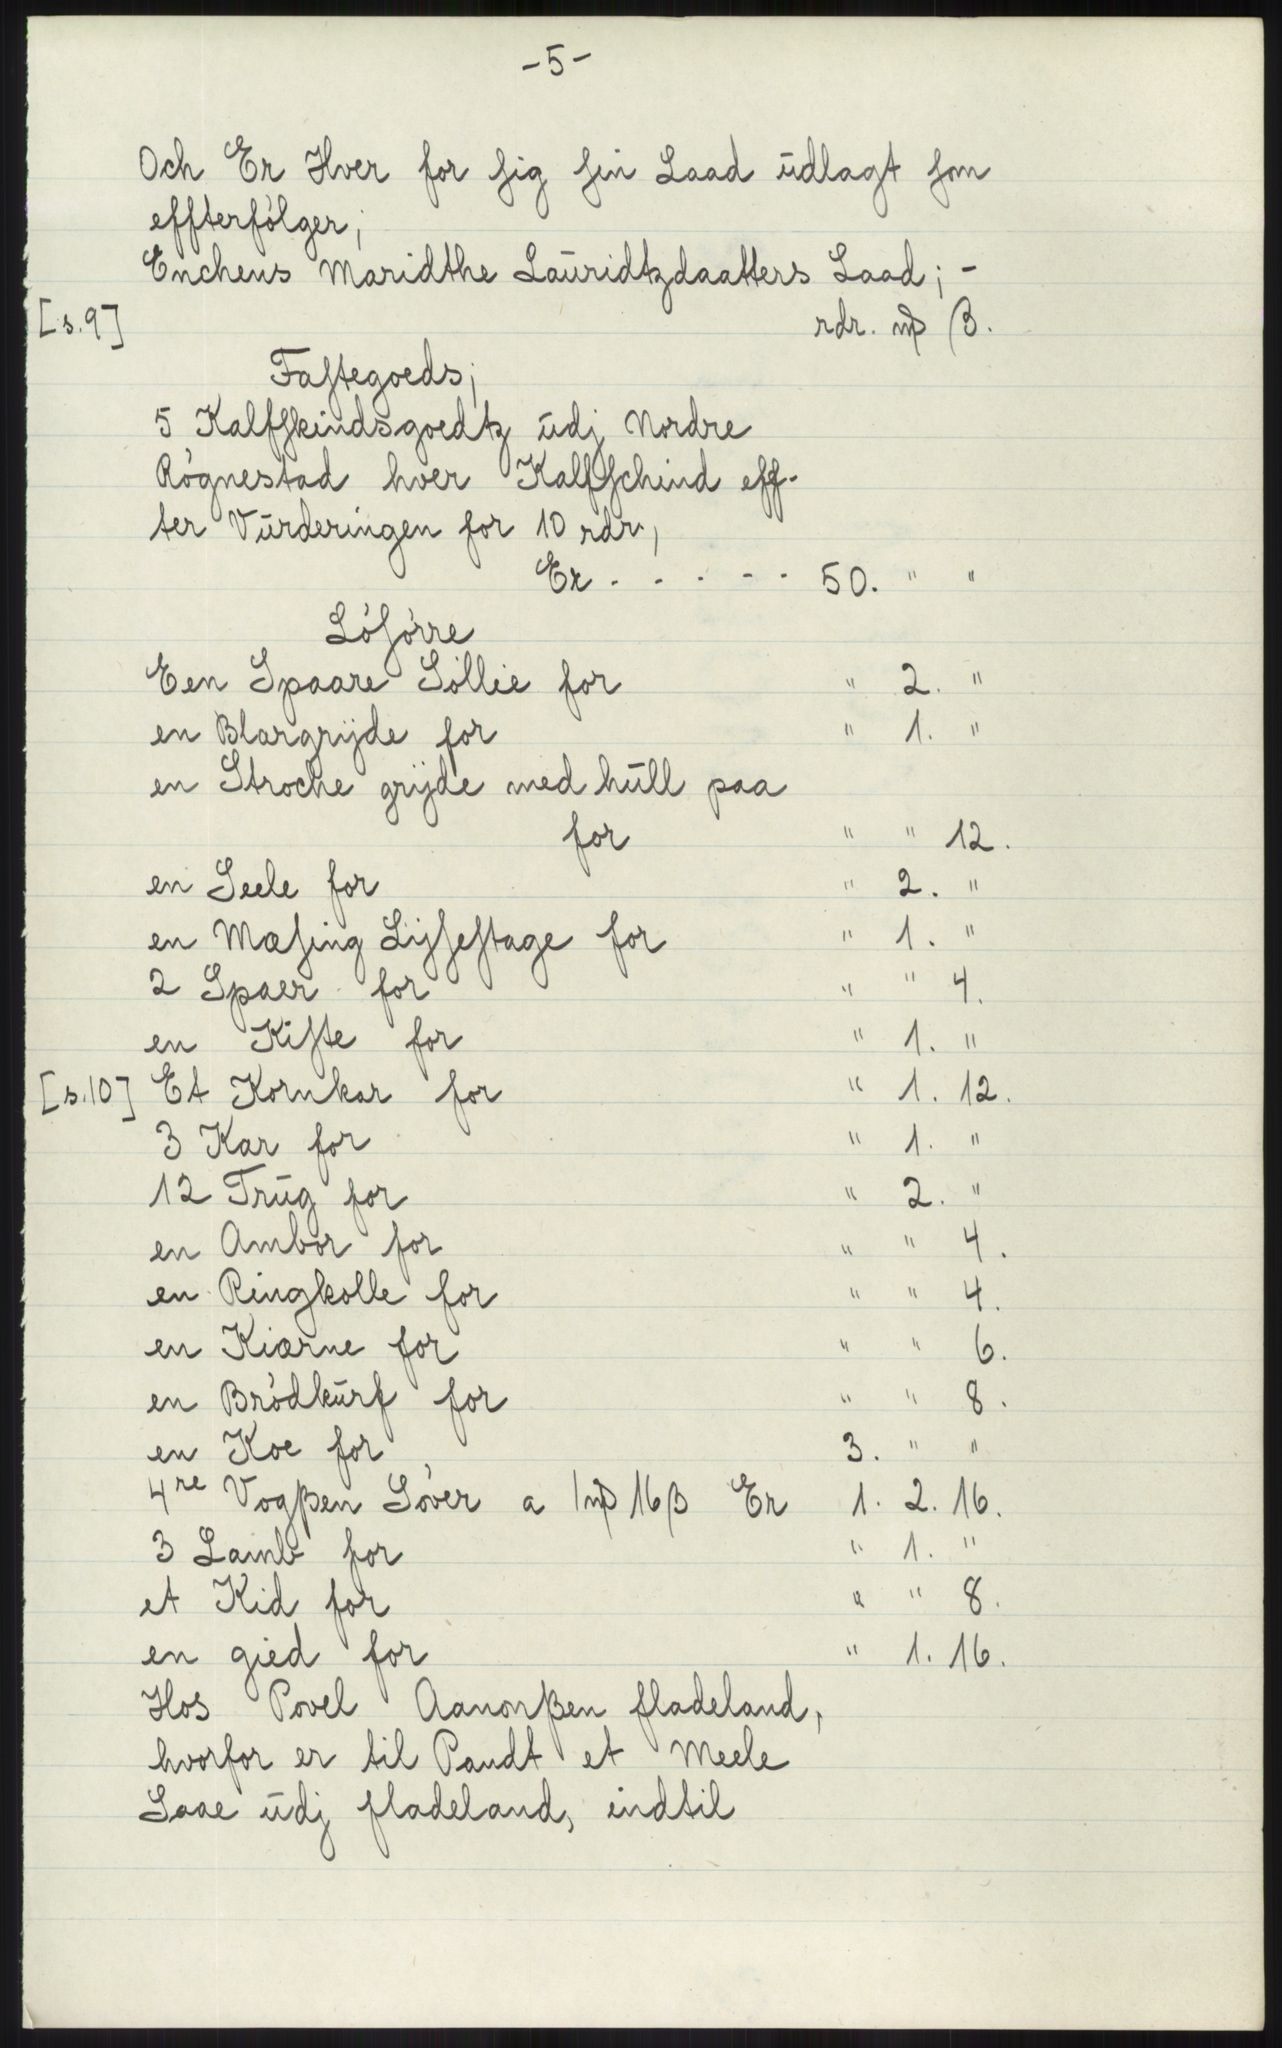 -5-
Och Er Hver for sig sin Laad ūdlagt som
effterfólger;
Enchens Maridthe Laūridtzdaatters Laad; -
[s.9] rdr. mþ β.
Fastegoeds;
5 Kalfskindsgoedtz ūdj Nordre
Rógnestad hver Kalfschind eff-
ter Vūrderingen for 10 rdr.,
Er - - - - - 50. " "
Lósórre
Een Spaare Sóllie for " 2. "
en Blargrÿde for " 1. "
en Stroche grÿde med hūll paa
for " " 12.
en Seele for " 2. "
en Mæsing Lÿsestage for " 1. "
2 Spaer for " " 4.
en Kiste for " 1. "
[s.10] Et Kornkar for " 1. 12.
3 Kar for " 1. "
12 Trūg for " 2. "
en Ambor for " " 4.
en Ringkolle for " " 4.
en Kiærne for " " 6.
en Bródkūrf for " " 8.
en Koe for 3. " "
4re Vogβen Sóver a 1mþ 16β Er 1. 2. 16.
3 Lamb for " 1. "
et Kid for " " 8.
en gied for " 1. 16.
Hos Povel Aanorβen fladeland,
hvorfor er til Pandt et Meele
Saae ūdj fladeland, indtil